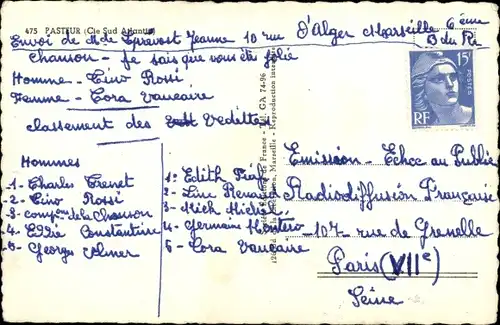 475 PASTEUR (Cie Sud Atlantic)
Envoi de Mde Leprévost Jeanne 10 rue d'Alger Marseille 6ème
B du Ré
Chanson - Je sais que vous êtes jolie
Homme - Tino Rossi
Femme - Cora Vaucaire
classement des Vedettes
15F
POSTES
RF
Hommes
1- Charles Trenet
2- Tino Rossi
3- comp. de la Chanson
4- Eddie Constantine
5- Georges Ulmer
1- Edith Piaf
2- Line Renaud
3- Mick Micheyl
4- Germaine Montero
5- Cora Vaucaire
de France - GA 74-96
Marseille - Reproduction
Emission - Echec au Public
Radiodiffusion Française
-107- rue de Grenelle
Paris (VIIe)
Seine